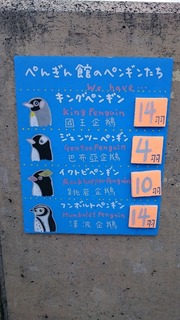 ぺんぎん館のペンギンたち
We have...
キングペンギン
King Penguin
國王企鵝
14羽
ジェンツーペンギン
Gentoo Penguin
巴布亞企鵝
4羽
イワトビペンギン
Rockhopper Penguin
跳岩企鵝
10羽
フンボルトペンギン
Humboldt Penguin
漢波企鵝
14羽